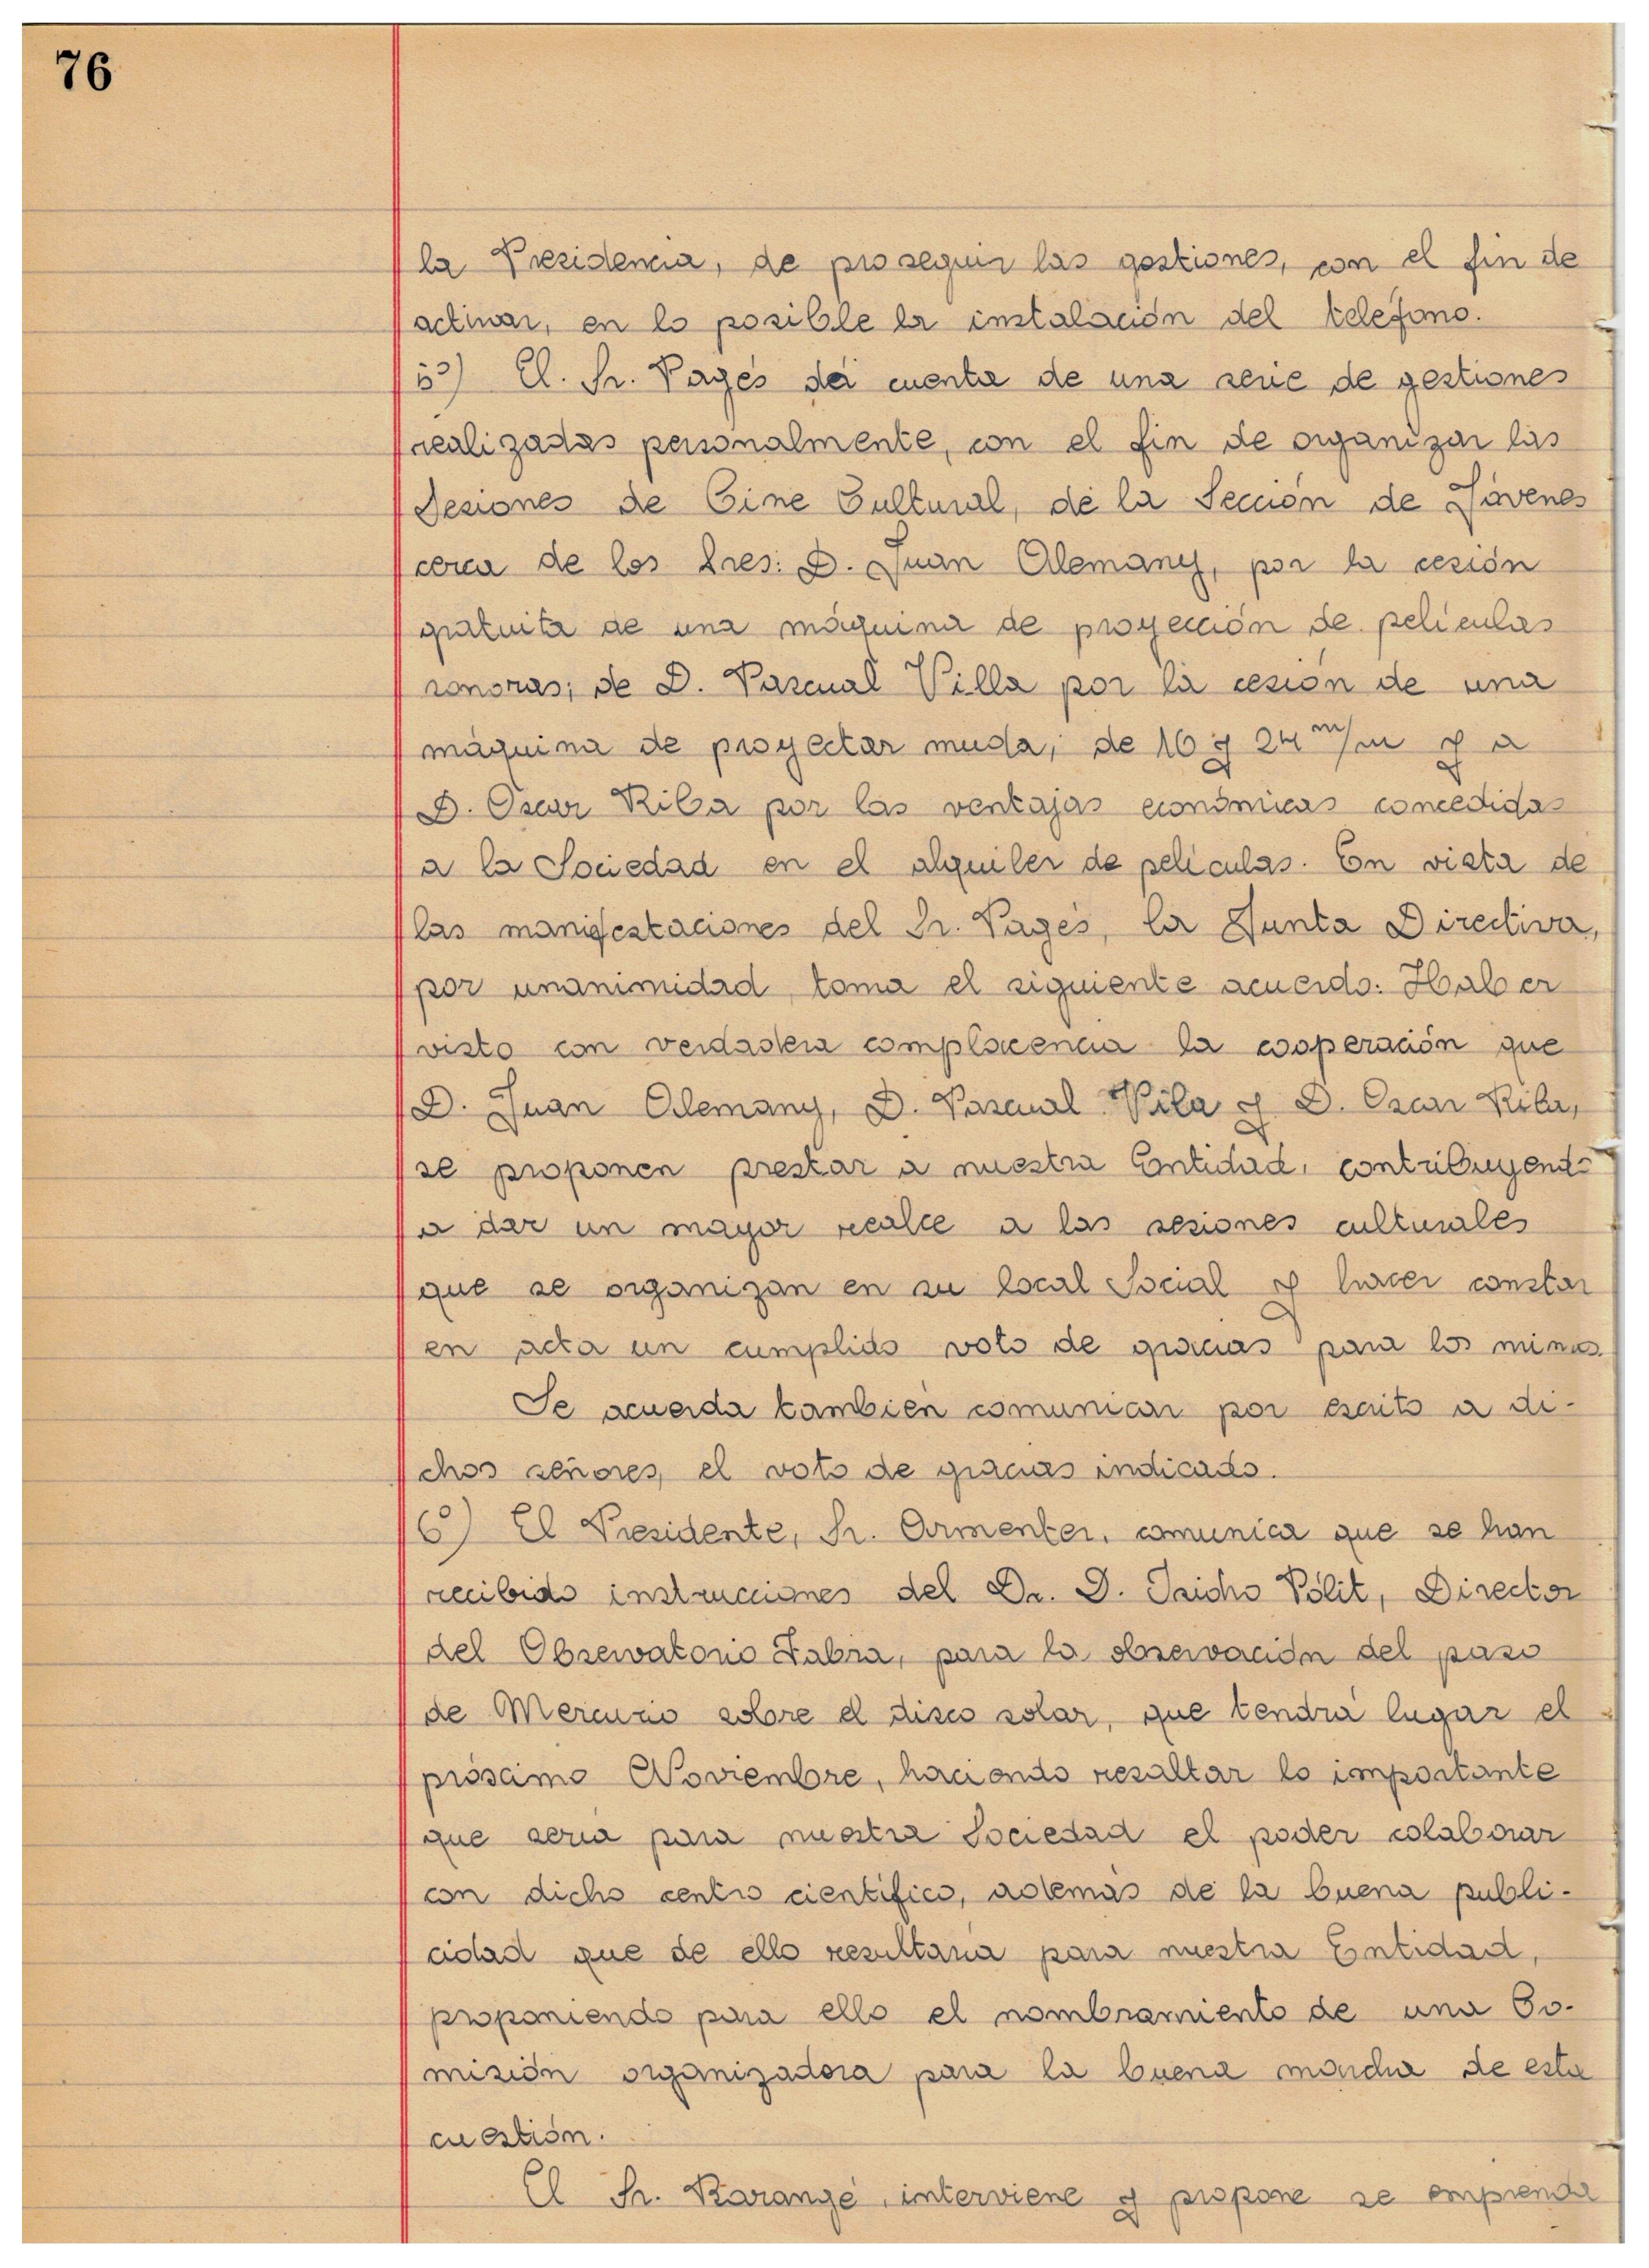 76
la Presidencia, de proseguir las gestiones, con el fin de
activar, en lo posible la instalación del telefono.
5º) El. Sr. Pagés da cuenta de una serie de gestiones
realizadas personalmente, con el fin de organizar las
Sesiones de Cine Cultural, de la Sección de Jóvenes
cerca de los Sres: D. Juan Alemany, por la cesión
gratuita de una máquina de proyección de peliculas
sonoras; de D. Pascual Villa por la cesión de una
máquina de proyectar muda, de 16 y 24 m/m y a
D. Oscar Riba por las ventajas económicas concedidas
a la Sociedad en el alquiler de peliculas. En vista de
las manifestaciones del Sr. Pagés, la Junta Directiva,
por unanimidad, toma el siguiente acuerdo: Haber
visto con verdadera complacencia la cooperación que
D. Juan Alemany, D. Pascual Vila y D. Oscar Riba,
se proponen prestar a nuestra Entidad, contribuyendo
a dar un mayor realce a las sesiones culturales
que se organizan en su local Social y hacer constar
en acta un cumplido voto de gracias para los mimos.
Se acuerda también comunicar por escrito a di-
chos señores, el voto de gracias indicado.
6º) El Presidente, Sr. Armenter, comunica que se han
recibido instrucciones del Dr. D. Isidro Pólit, Director
del Observatorio Fabra, para la observación del paso
de Mercurio sobre el disco solar, que tendrá lugar el
próximo Noviembre, haciendo resaltar lo importante
que sería para nuestra Sociedad el poder colaborar
con dicho centro científico, además de la buena publi-
cidad que de ello resultaría para nuestra Entidad,
proponiendo para ello el nombramiento de una Co-
misión organizadora para la buena marcha de esta
cuestión.
El Sr. interviene y propone se emprenda